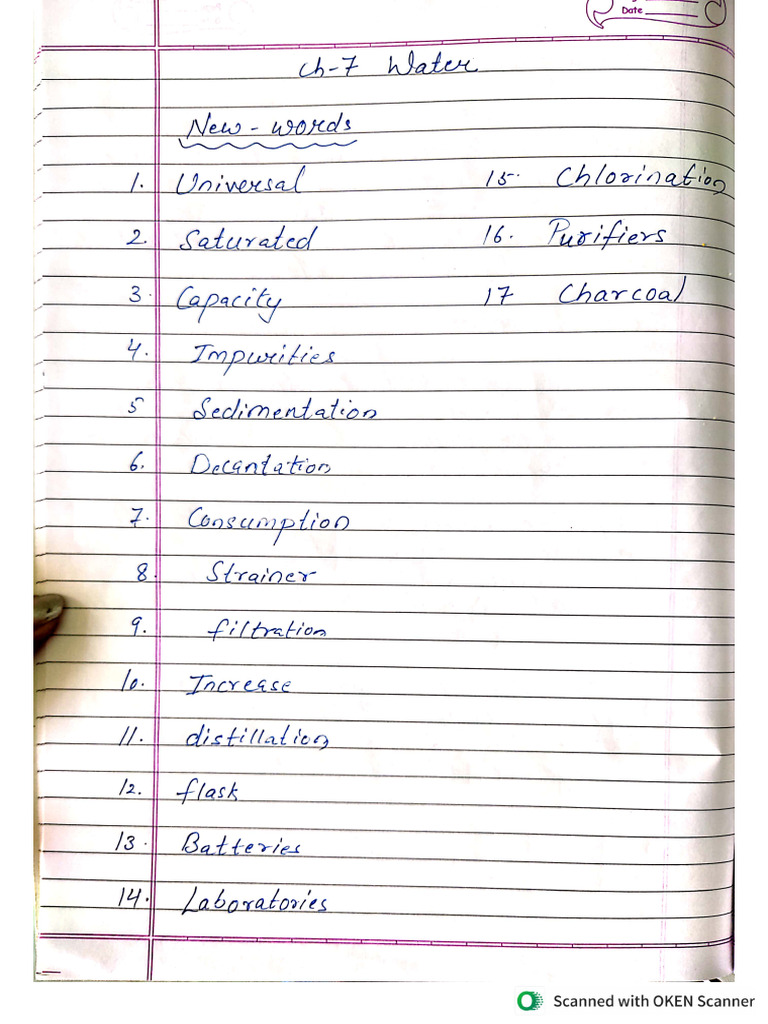 Date
Ch-7 Water
New-words
1. Universal
2. Saturated
3. Capacity
4. Impurities
5 Sedimentation
6. Decantation
7. Consumption
8. Strainer
9. filtration
10. Increase
11. distillation
12. flask
13. Batteries
14. Laboratories
15. Chlorination
16. Purifiers
17 Charcoal
Scanned with OKEN Scanner